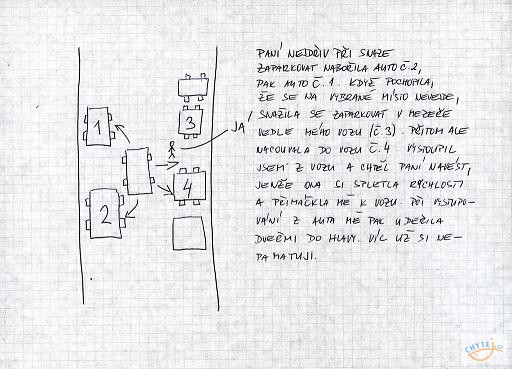 PANÍ NEJDŘÍV PŘI SNAZE
ZAPARKOVAT NABOŘILA AUTO Č.2,
PAK AUTO Č.1. KDYŽ POCHOPILA,
ŽE SE NA VYBRANÉ MÍSTO NEVEJDE,
SNAŽILA SE ZAPARKOVAT V MEZEŘE
VEDLE MÉHO VOZU (Č.3). PŘITOM ALE
NACOUVALA DO VOZU Č.4. VYSTOUPIL
JSEM Z VOZU A CHTĚL PANÍ NAVÉST,
JENŽE ONA SI SPLETLA RYCHLOSTI
A PŘIMÁČKLA MĚ K VOZU. PŘI VYSTUPO-
VÁNÍ Z AUTA MĚ PAK UDEŘILA
DVEŘMI DO HLAVY. VÍC UŽ SI NE-
PAMATUJI.
1
2
3
4
JÁ
CHYTEJ.CZ